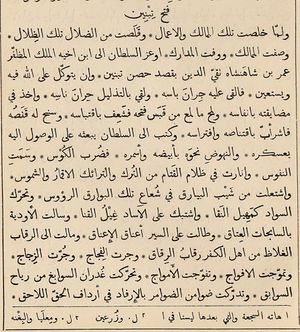 فتح تبنين
ولمّا خلصت تلك الممالك والاعمال * وقلّصت من الضلال تلك الظلال *
وصفت الممالك * ووفت المدارك * اوعز السلطان الى ابن اخيه الملك المظفّر
عمر بن شاهنشاه تقيّ الدين بقصد حصن تبنين * وإن يتوكّل على الله فيه
ويستعين * فالقى عليه جِرانَ باسه * ولقي بالتذليل حِرانَ ناسه * واخذ في
مضايقته بانفاسه * ولمح ما لمع من قبس فتحه فشعف باقتباسه * وسنح له قنصه
فاشرأبّ باقتناصه وافتراسه * وكتب الى السلطان يبعثه على الوصول اليه
بعسكره * والنهوض نحوه بأبيضه وأسمره * فضرب الكُوس * وسَمَت
النفوس * وانارت في ظلام القتام من الترك والترائك الاقمار والشموس *
واشتعلت من شيب البيارق في شُعاع تلك البوارق الرؤوس * وتحرّك
السواد كمهيل النقا * واشتبك على الآساد غِيلُ القنا * وسالت الأودية
بالسابحات العِتاق * وطالت على السير أعناق الإعناق * ومالت الى الرقاب
الغلاظ من اهل الكفر رقابُ الرقاق * وجرت العجاج * وجُرّت الزجاج *
وتموّجت الافواج * وتفوّجت الأمواج * وتحرّكت غُدران السوابغ من رياح
السوابق * وتدرّكت ضوامن الضوامر بالإرفاد في أرداف الحقّ اللاحق *
١ هاته السجعة والتي بعدها ليستا في ا ٢ ل. وزُرعين ٣ ل. ومعليا واليفنه